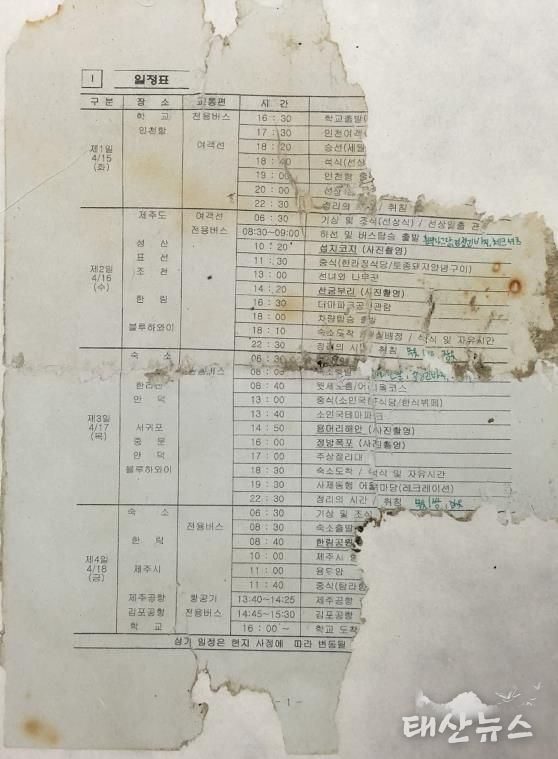 Ⅰ 일정표
구 분 장 소 교통편 시 간
제1일 4/15 (화)
학 교 전용버스 16 : 30 학교출발
인천항 17 : 30 인천여객
여객선 18 : 20 승선(세월
18 : 40 석식(선상
19 : 00 인천항 출
20 : 00 선상
22 : 30 정리의 / 취침
제2일 4/16 (수)
제주도 여객선 06 : 30 기상 및 조식(선상식) / 선상일출 관
전용버스 08:30~09:00 하선 및 버스탑승 출발
성 산 10 : 20 섭지코지 (사진촬영)
표 선 11 : 30 중식(한라정식당/토종돼지양념구이)
조 천 13 : 00 선녀와 나무꾼
14 : 20 산굼부리 (사진촬영)
한 림 16 : 30 더마파크공연관람
18 : 00 차량탑승 출발
블루하와이 18 : 10 숙소도착 실배정 / 석식 및 자유시간
22 : 30 정리의 시 취침
제3일 4/17 (목)
숙 소 06 : 30
08 : 00 숙소출발
한라산 08 : 40 윗세오름/어 목코스
안 덕 13 : 00 중식(소인국 식당/한식뷔페)
13 : 40 소인국테마파크
서귀포 14 : 50 용머리해안 (사진촬영)
중 문 16 : 00 정방폭포 (사진촬영)
안 덕 17 : 00 주상절리대
블루하와이 18 : 30 숙소도착 / 석식 및 자유시간
19 : 30 사제동행 어울 마당(레크레이션)
22 : 30 정리의 시간 / 취침
제4일 4/18 (금)
숙 소 06 : 30 기상 및 조식
전용버스 08 : 30 숙소출발
한 림 08 : 40 한림공원
10 : 00 제주시
제주시 11 : 00 용두암
11 : 40 중식(탐라
제주공항 항공기 13:40~14:25 제주공항
김포공항 전용버스 14:45~15:30 김포공항
학 교 16 : 00 ~ 학교 도착
상기 일정은 현지 사정에 따라 변동될
- 1 -
태산뉴스